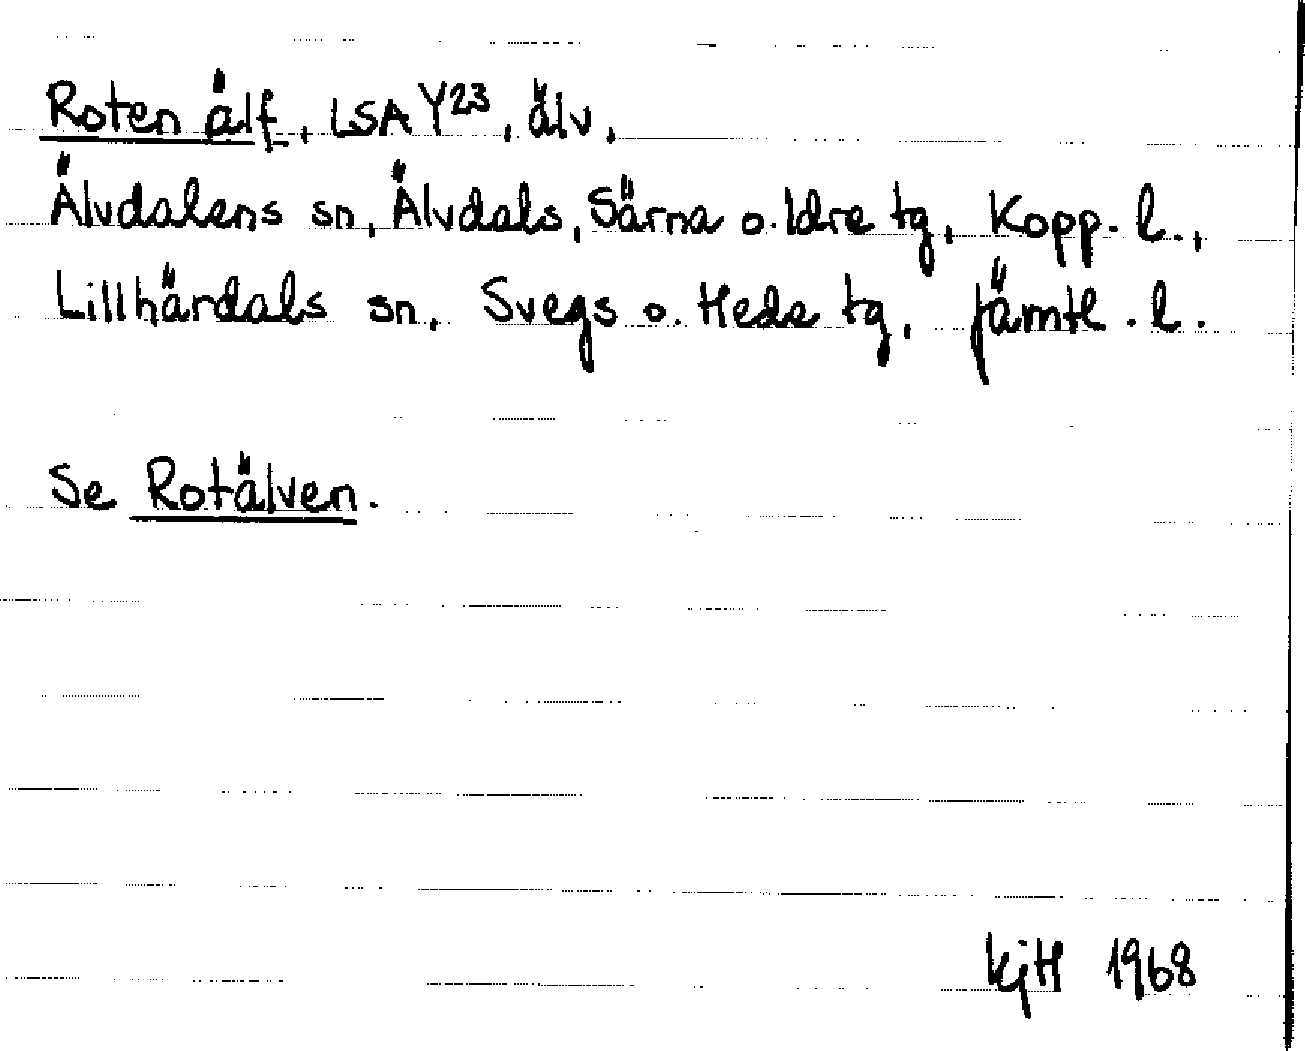 Roten älf, LSA Y23, älv,
Älvdalens sn, Älvdals, Särna o. Idre tg, Kopp. l.,
Lillhärdals sn, Svegs o. Hede tg, Jämtl. l.
Se Rotälven.
KjH 1968